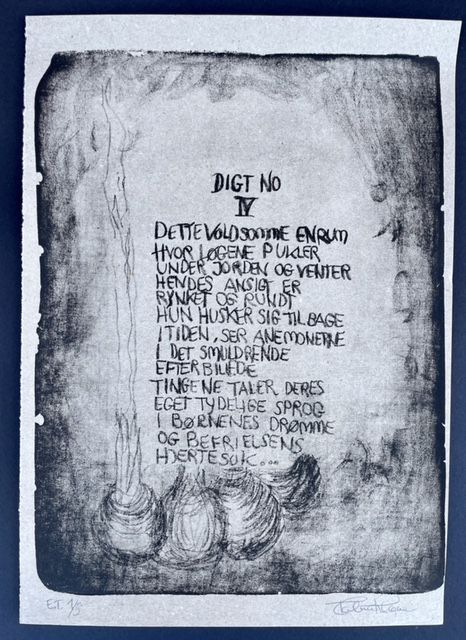 DIGT NO
IV
DETTE VOLDSOMME ENRUM
HVOR LØGENE PUKLER
UNDER JORDEN OG VENTER
HENDES ANSIGT ER
RYNKET OG RUNDT
HUN HUSKER SIG TILBAGE
I TIDEN, SER ANEMONERNE
I DET SMULDRENDE
EFTERBILLEDE
TINGENE TALER DERES
EGET TYDELIGE SPROG
I BØRNENES DRØMME
OG BEFRIELSENS
HJERTESUK...
E.T.